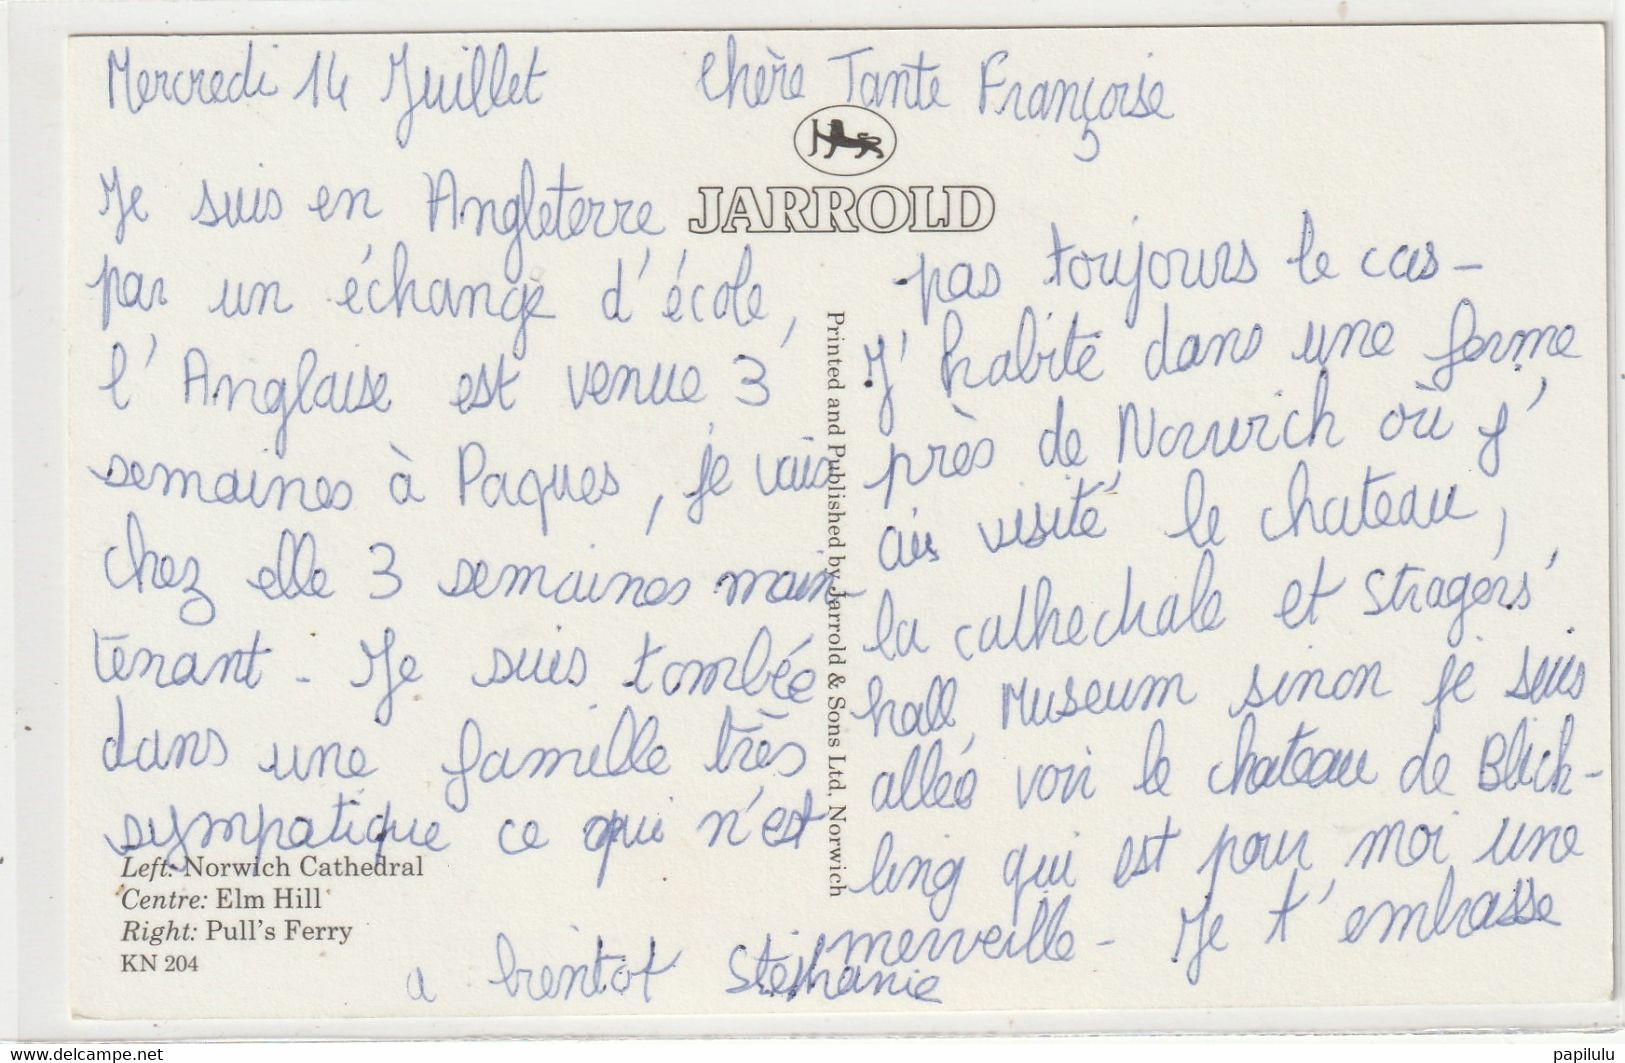 Mercredi 14 Juillet
Chère Tante Françoise
JARROLD
Je suis en Angleterre
par un échange d'école,
l'Anglaise est venue 3
semaines à Paques, je vais
chez elle 3 semaines main-
tenant - Je suis tombée
dans une famille très
sympatique ce qui n'est
pas toujours le cas -
J'habite dans une ferme
près de Norwich où j'
ais visité le chateau,
la cathedrale et Stragers'
hall, Museum sinon je suis
allée voir le chateau de Blick-
ling qui est pour moi une
merveille - Je t'embrasse
a bientot Stéphanie
Printed and Published by Jarrold & Sons Ltd, Norwich
Left: Norwich Cathedral
Centre: Elm Hill
Right: Pull's Ferry
KN 204
www.delcampe.net
papilulu